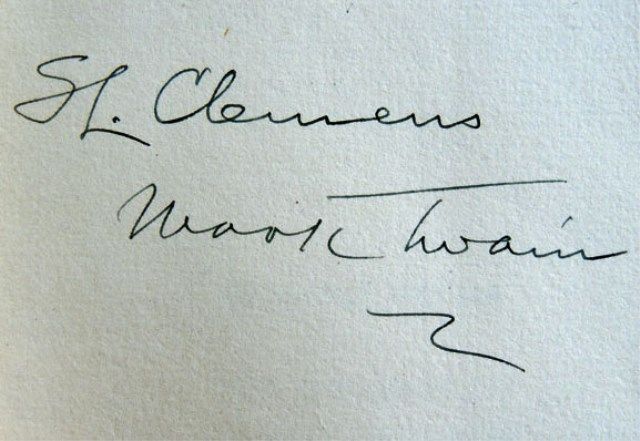 SL. Clemens
Mark Twain